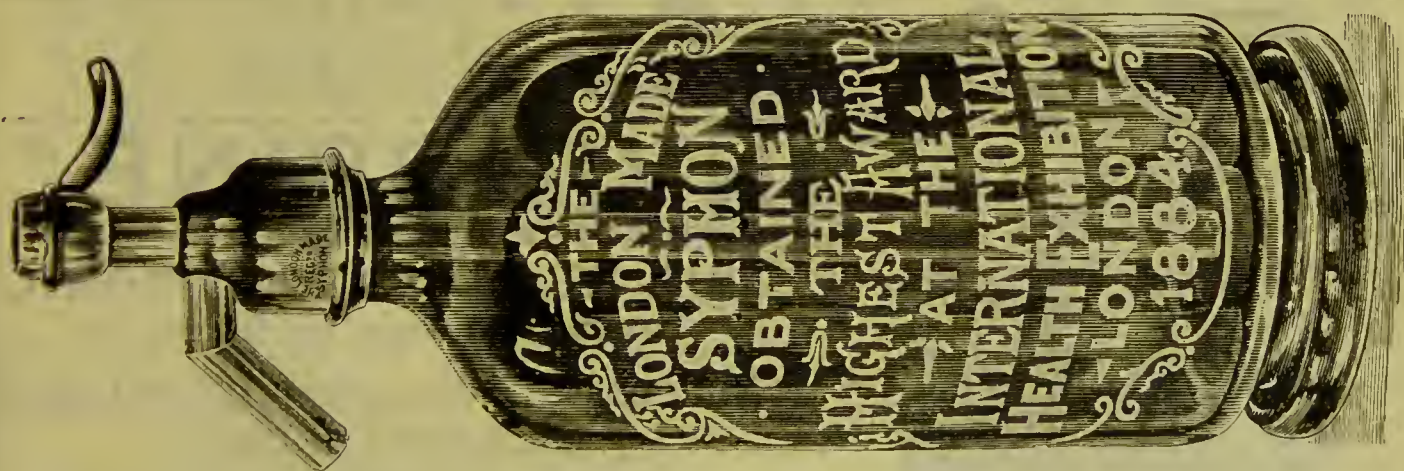 THE
LONDON MADE
SYPHON
OBTAINED
THE
HIGHEST AWARD
AT THE
INTERNATIONAL
HEALTH EXHIBITION
LONDON
1884
LONDON MADE
SYPHON